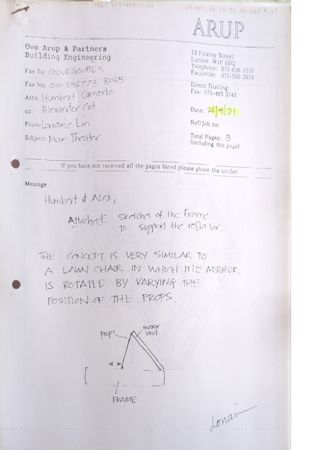 ARUP
Ove Arup & Partners
Building Engineering
13 Fitzroy Street
London W1P 6BQ
Telephone: 071-636 1531
Facsimile: 071-580 3924
Direct Dialing:
Fax: 071-465
Fax To:
Fax No: 3065
Attn: Humbert Camerlo
cc: Alexander Cot
From: Lorraine Lin
Subject: Moon Theater
Date: 26/4/91
Ref/Job no:
Total Pages: 3
(including this page)
If you have not received all the pages listed please phone the sender.
Message
Humbert & Alex,
Attached: Sketches of the frame
to support the reflector
THE CONCEPT IS VERY SIMILAR TO
A LAWN CHAIR IN WHICH THE MIRROR
IS ROTATED BY VARYING THE
POSITION OF THE PROPS.
props
mirror
unit
FRAME